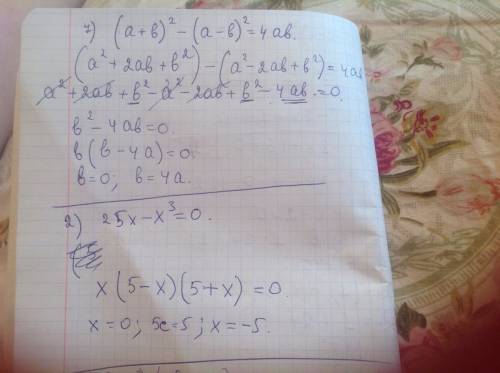 7) (a+b)² - (a-b)² = 4ab.
(a² + 2ab + b²) - (a² - 2ab + b²) = 4ab
a² + 2ab + b² - a² - 2ab + b² - 4ab = 0.
b² - 4ab = 0.
b(b - 4a) = 0.
b = 0; b = 4a.
2) 25x - x³ = 0.
x(5-x)(5+x) = 0
x = 0; x = 5; x = -5.